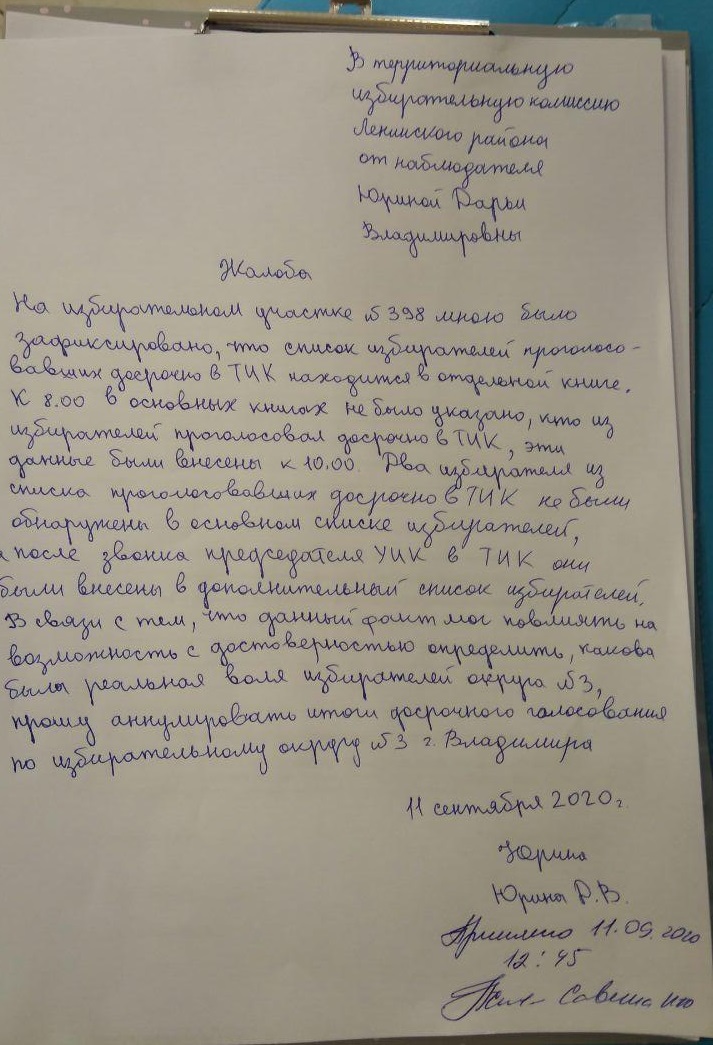 В территориальную
избирательную комиссию
Ленинского района
от наблюдателя
Юриной Дарьи
Владимировны
Жалоба
На избирательном участке №398 мною было
зафиксировано, что список избирателей проголосо-
вавших досрочно в ТИК находится в отдельной книге.
К 8.00 в основных книгах не было указано, кто из
избирателей проголосовал досрочно в ТИК, эти
данные были внесены к 10.00. Два избирателя из
списка проголосовавших досрочно в ТИК не были
обнаружены в основном списке избирателей,
а после звонка председателя УИК в ТИК они
были внесены в дополнительный список избирателей.
В связи с тем, что данный факт мог повлиять на
возможность с достоверностью определить, какова
была реальная воля избирателей округа №3,
прошу аннулировать итоги досрочного голосования
по избирательному округу №3 г. Владимира
11 сентября 2020г.
Юрина
Юрина Д.В.
Принято 11.09.2020
12:45